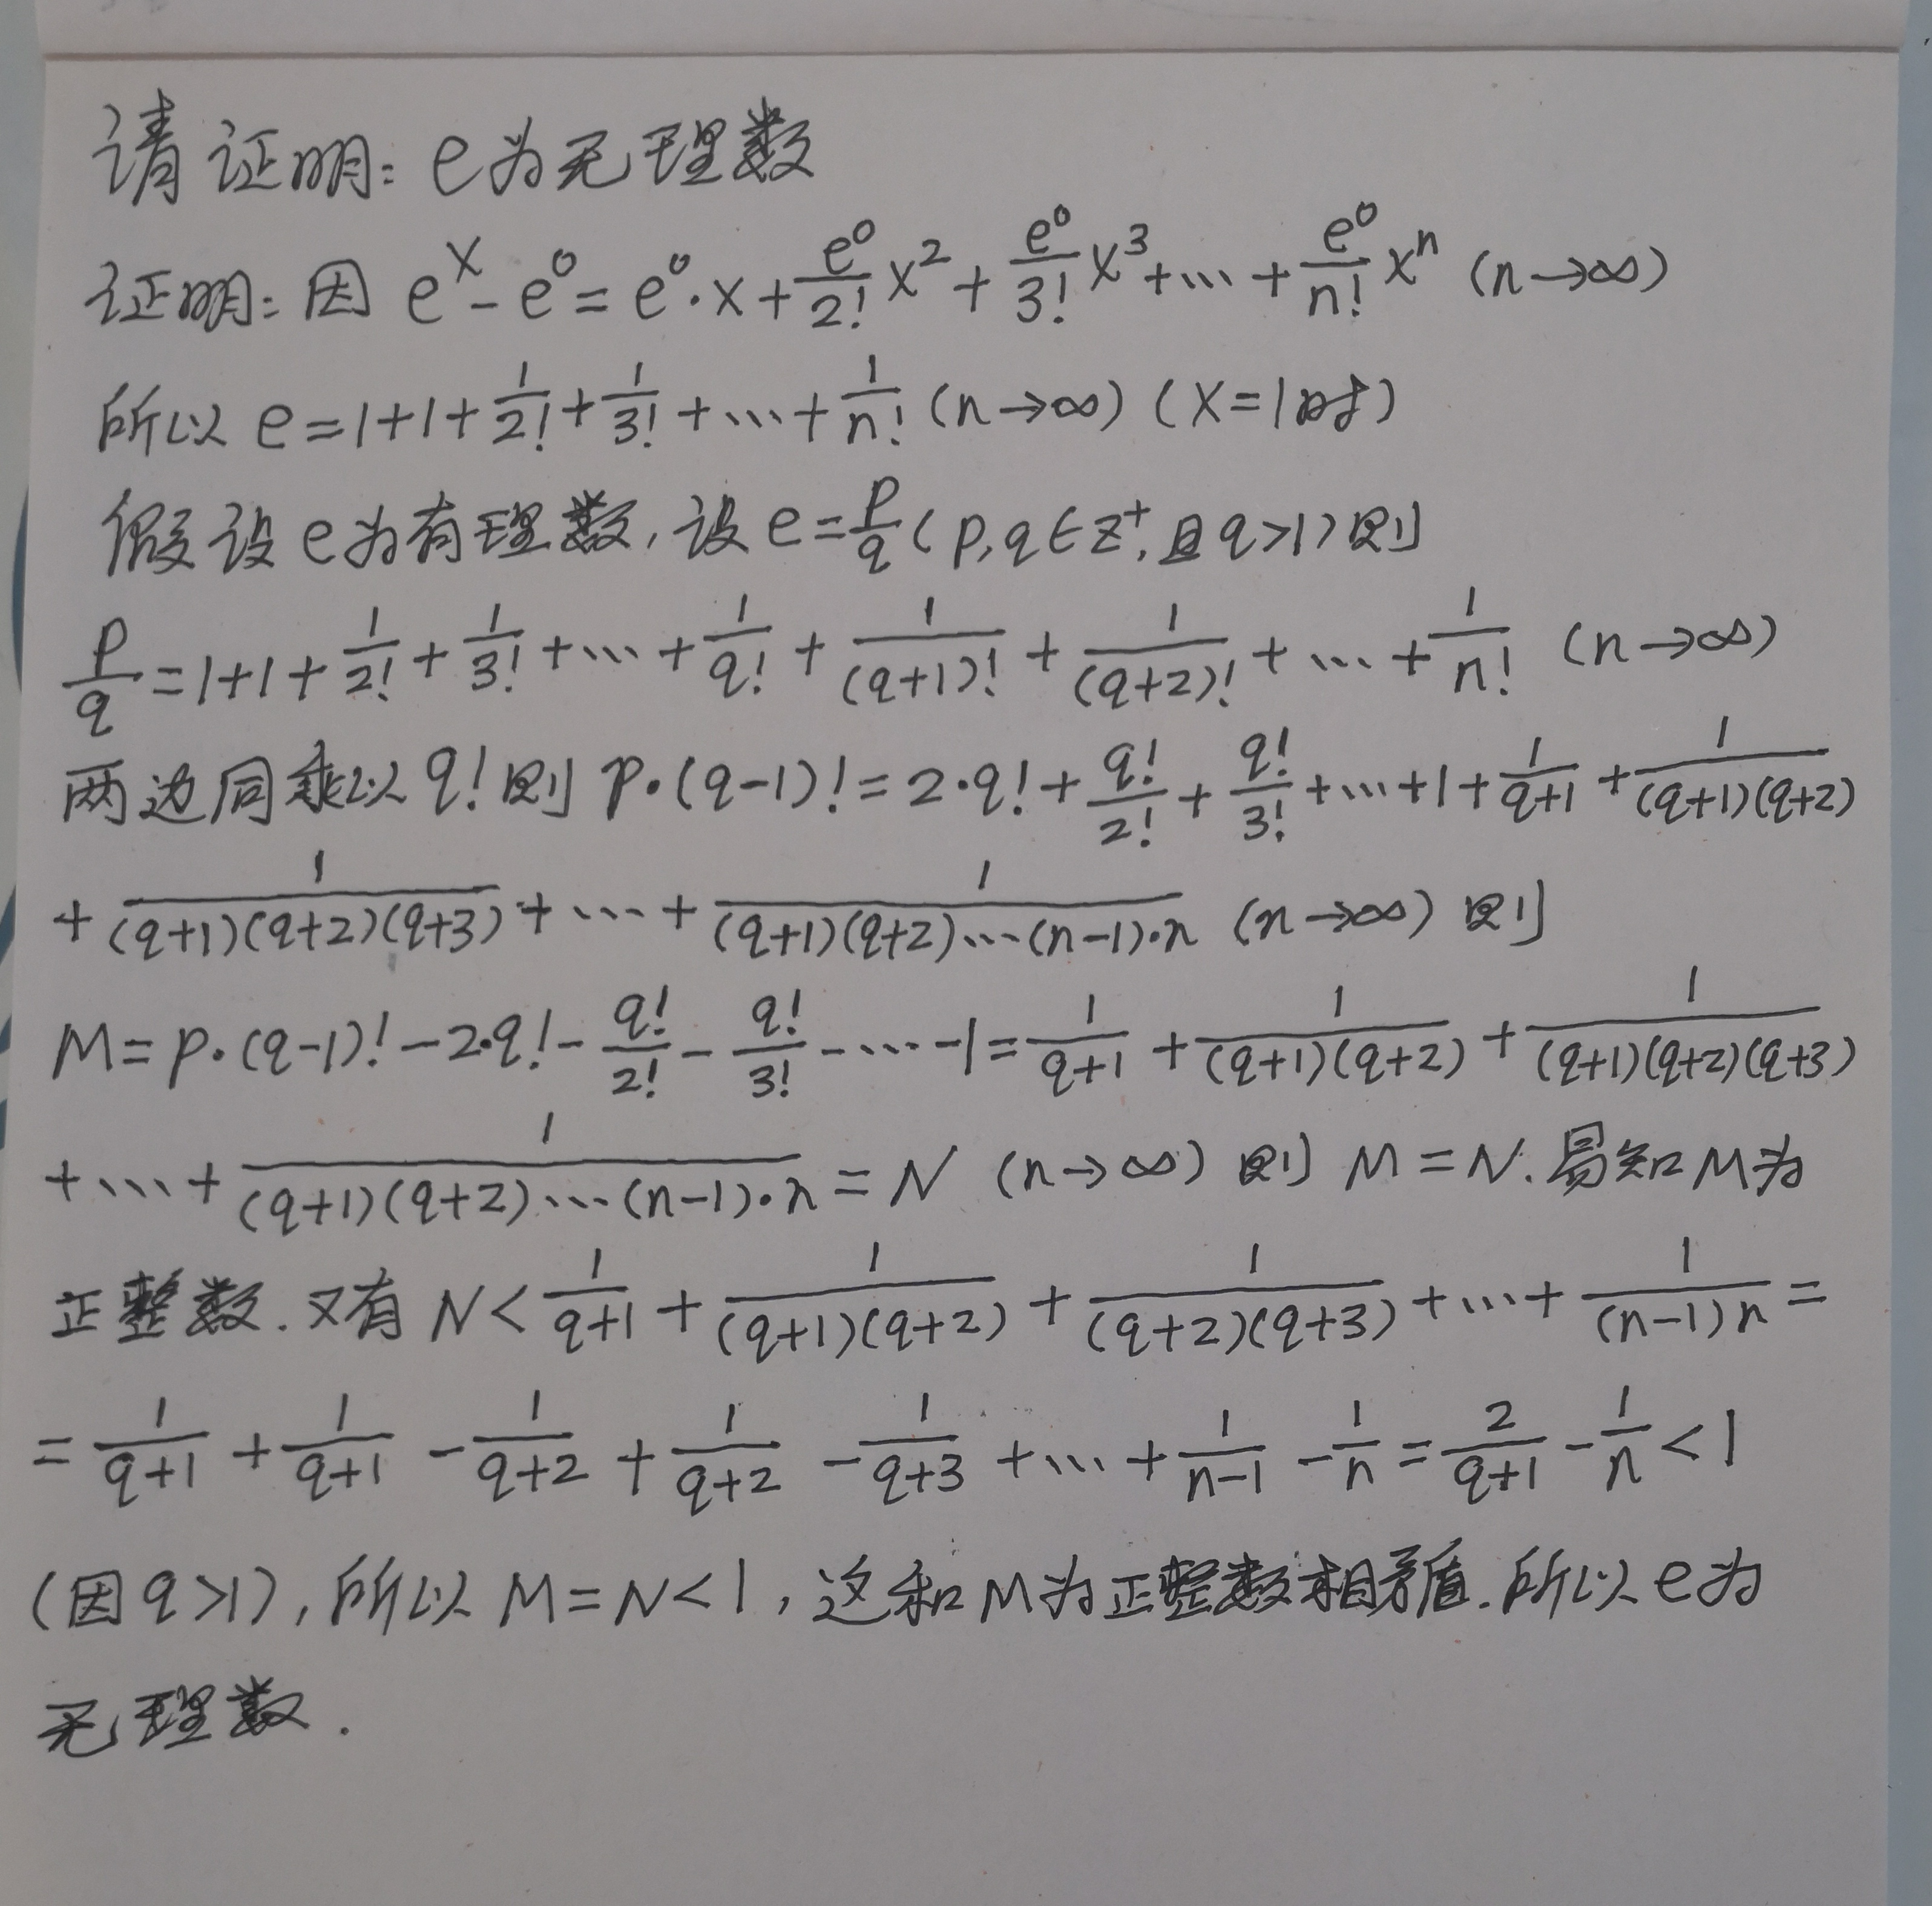 请证明: e为无理数
证明: 因 e^x - e^0 = e^0·x + e^0/2! x^2 + e^0/3! x^3 + … + e^0/n! x^n (n→∞)
所以 e = 1+1+1/2!+1/3!+…+1/n! (n→∞) (x=1时)
假设e为有理数, 设 e=p/q (p,q∈z^+, 且q>1) 则
p/q = 1+1+1/2!+1/3!+…+1/q!+1/(q+1)!+1/(q+2)!+…+1/n! (n→∞)
两边同乘以 q! 则 p·(q-1)! = 2·q!+q!/2!+q!/3!+…+1+1/(q+1)+1/((q+1)(q+2))
+1/((q+1)(q+2)(q+3))+…+1/((q+1)(q+2)…(n-1)·n) (n→∞) 则
M = p·(q-1)!-2·q!-q!/2!-q!/3!-…-1 = 1/(q+1)+1/((q+1)(q+2))+1/((q+1)(q+2)(q+3))
+…+1/((q+1)(q+2)…(n-1)·n) = N (n→∞) 则 M=N. 易知M为
正整数. 又有 N<1/(q+1)+1/((q+1)(q+2))+1/((q+2)(q+3))+…+1/((n-1)n)=
=1/(q+1)+1/(q+1)-1/(q+2)+1/(q+2)-1/(q+3)+…+1/(n-1)-1/n=2/(q+1)-1/n<1
(因q>1), 所以 M=N<1, 这和M为正整数相矛盾. 所以e为
无理数.